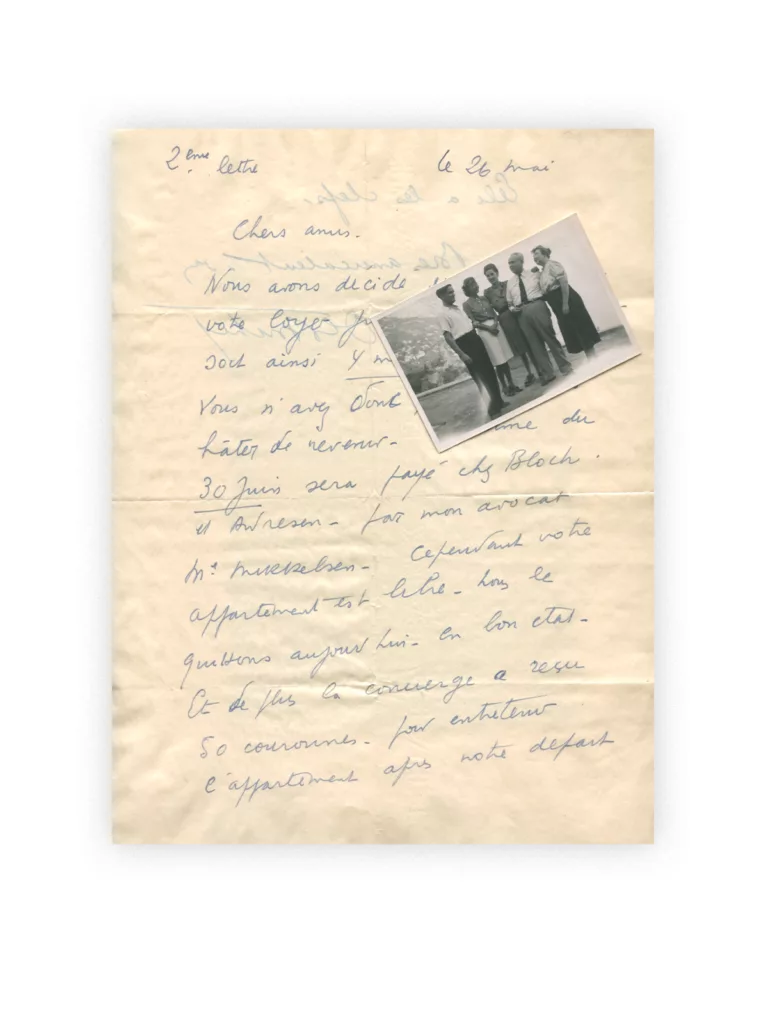 2ème lettre le 26 mai
Chers amis.
Nous avons décidé
votre loyer
soit ainsi 4 m
Vous n'avez donc
hâter de revenir - du
30 Juin sera payé chez Bloch.
et Andresen - par mon avocat
Me Mikkelsen - Cependant votre
appartement est libre - nous le
quittons aujourd'hui - en bon état -
Et de plus la concierge a reçu
50 couronnes - pour entretenir
l'appartement après notre départ